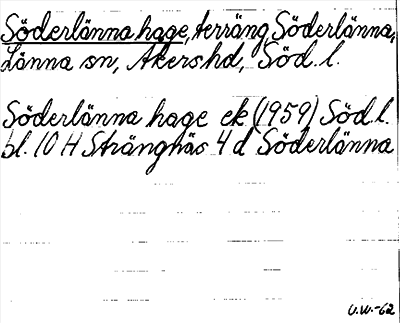 Söderlänna hage, terräng Söderlänna,
Länna sn, Åkershd, Söd. l.
Söderlänna hage ek (1959) Söd. l.
bl. 10 H Strängnäs 4 d Söderlänna
U.W.-62